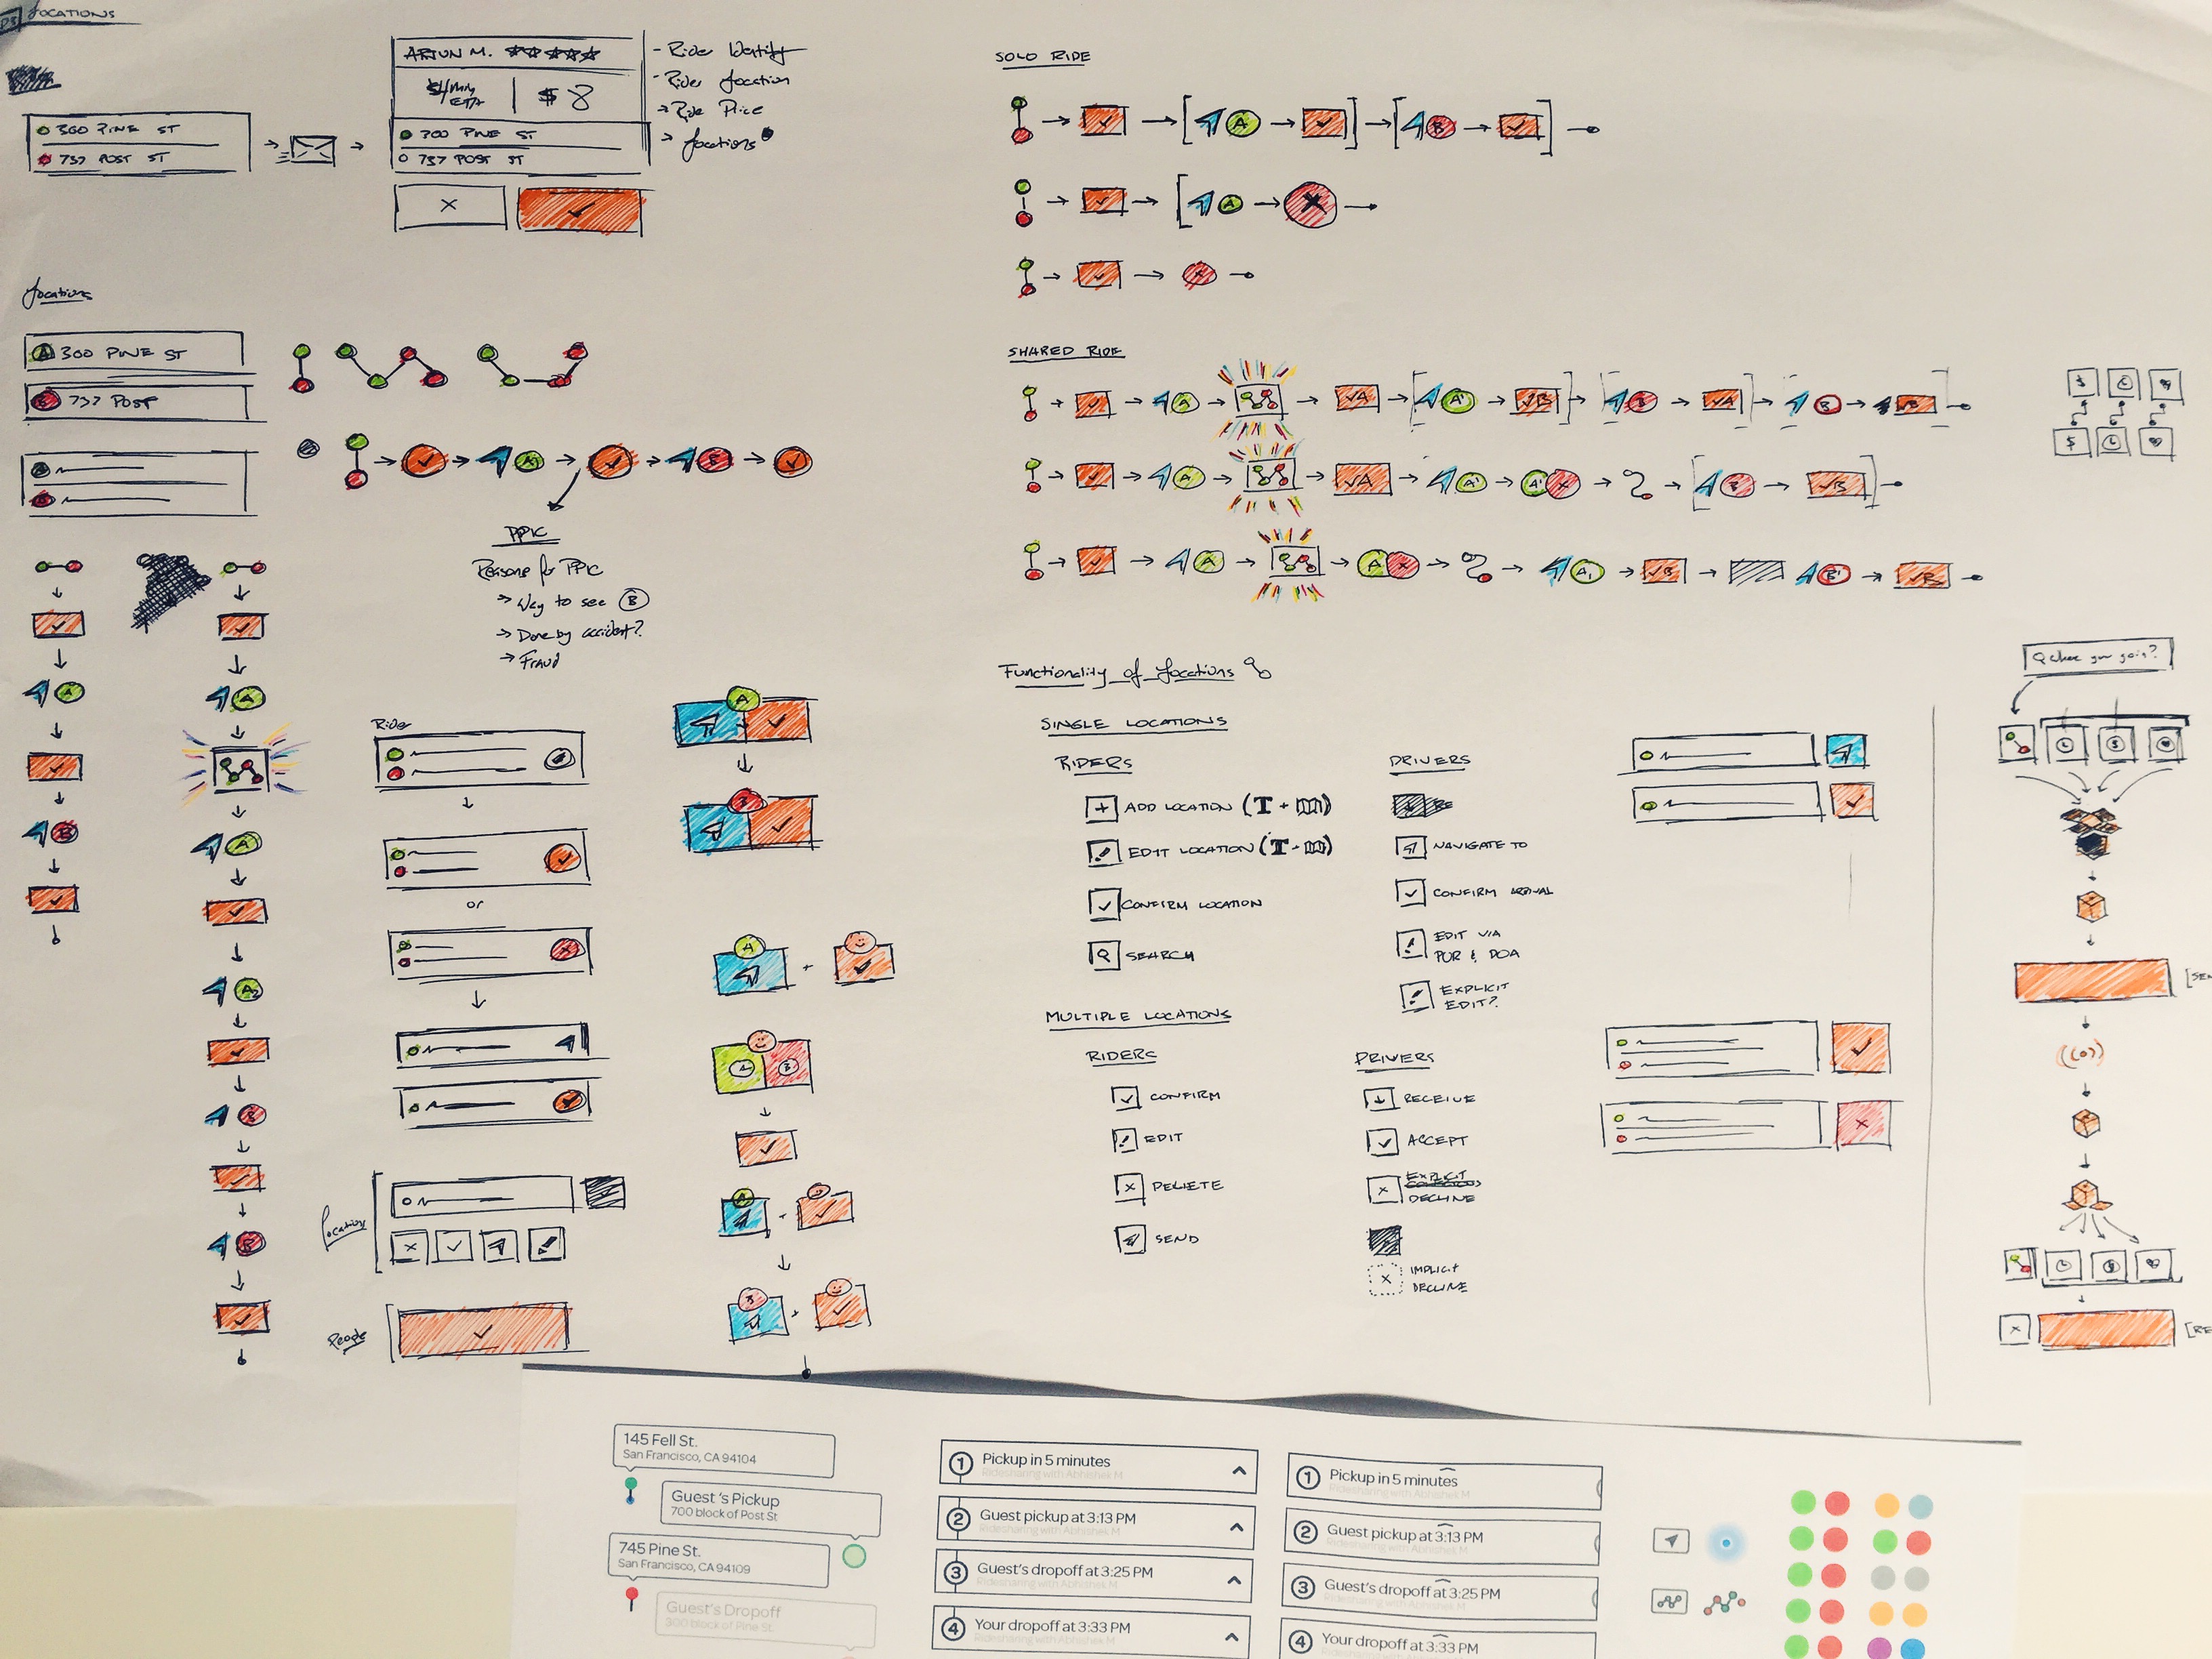 LOCATIONS
300 PINE ST
737 POST ST
ARJUN M.
ETA
$8
300 PINE ST
737 POST ST
- Rider Identity
- Rider Location
→ Ride Price
→ Locations
×
✓
Locations
A 300 PINE ST
B 737 POST
PPIC
Reasons for PPIC
→ Way to see B
→ Done by accident?
→ Fraud
Rider
or
Locations
People
SOLO RIDE
A
B
A
SHARED RIDE
A
√A
A'
√B
B
√A
B'
√B
A
√A
A'
A' ×
B
√B
A
A ×
A1
√B
B'
√B
Functionality of Locations
SINGLE LOCATIONS
RIDERS
+ ADD LOCATION (T + )
EDIT LOCATION (T + )
✓ CONFIRM LOCATION
SEARCH
DRIVERS
NAVIGATE TO
✓ CONFIRM ARRIVAL
EDIT VIA
PUR & DOA
EXPLICIT
EDIT?
MULTIPLE LOCATIONS
RIDERS
✓ CONFIRM
EDIT
× DELETE
SEND
DRIVERS
RECEIVE
✓ ACCEPT
× EXPLICIT
DECLINE
× IMPLICIT
DECLINE
Where you going?
[SEN
[RE
145 Fell St.
San Francisco, CA 94104
Guest's Pickup
700 block of Post St
745 Pine St.
San Francisco, CA 94109
Guest's Dropoff
300 block of Pine St
1 Pickup in 5 minutes
Ridesharing with Abhishek M
2 Guest pickup at 3:13 PM
Ridesharing with Abhishek M
3 Guest's dropoff at 3:25 PM
Ridesharing with Abhishek M
4 Your dropoff at 3:33 PM
Ridesharing with Abhishek M
1 Pickup in 5 minutes
Ridesharing with Abhishek M
2 Guest pickup at 3:13 PM
Ridesharing with Abhishek M
3 Guest's dropoff at 3:25 PM
Ridesharing with Abhishek M
4 Your dropoff at 3:33 PM